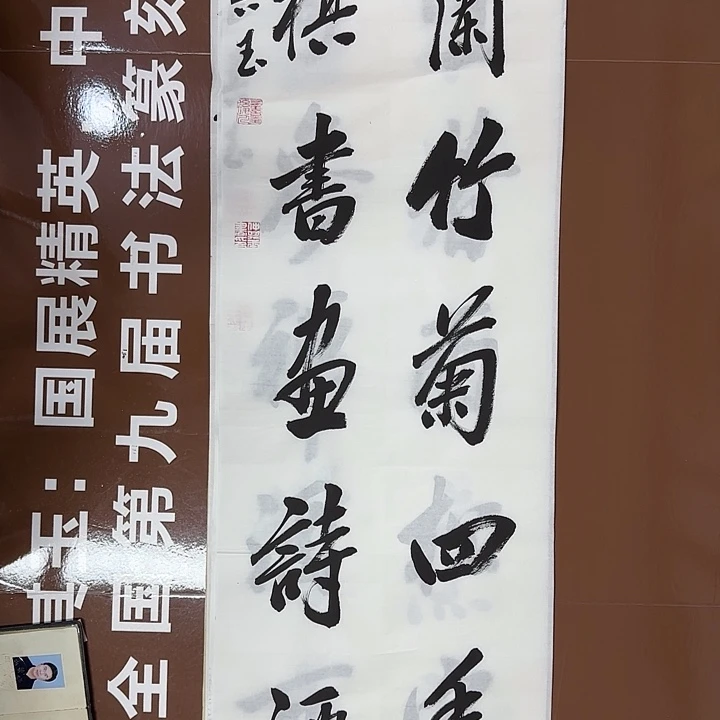 蘭竹菊四季
棋書畫詩酒
玉
玉：国展精英 中
全国第九届书法篆刻